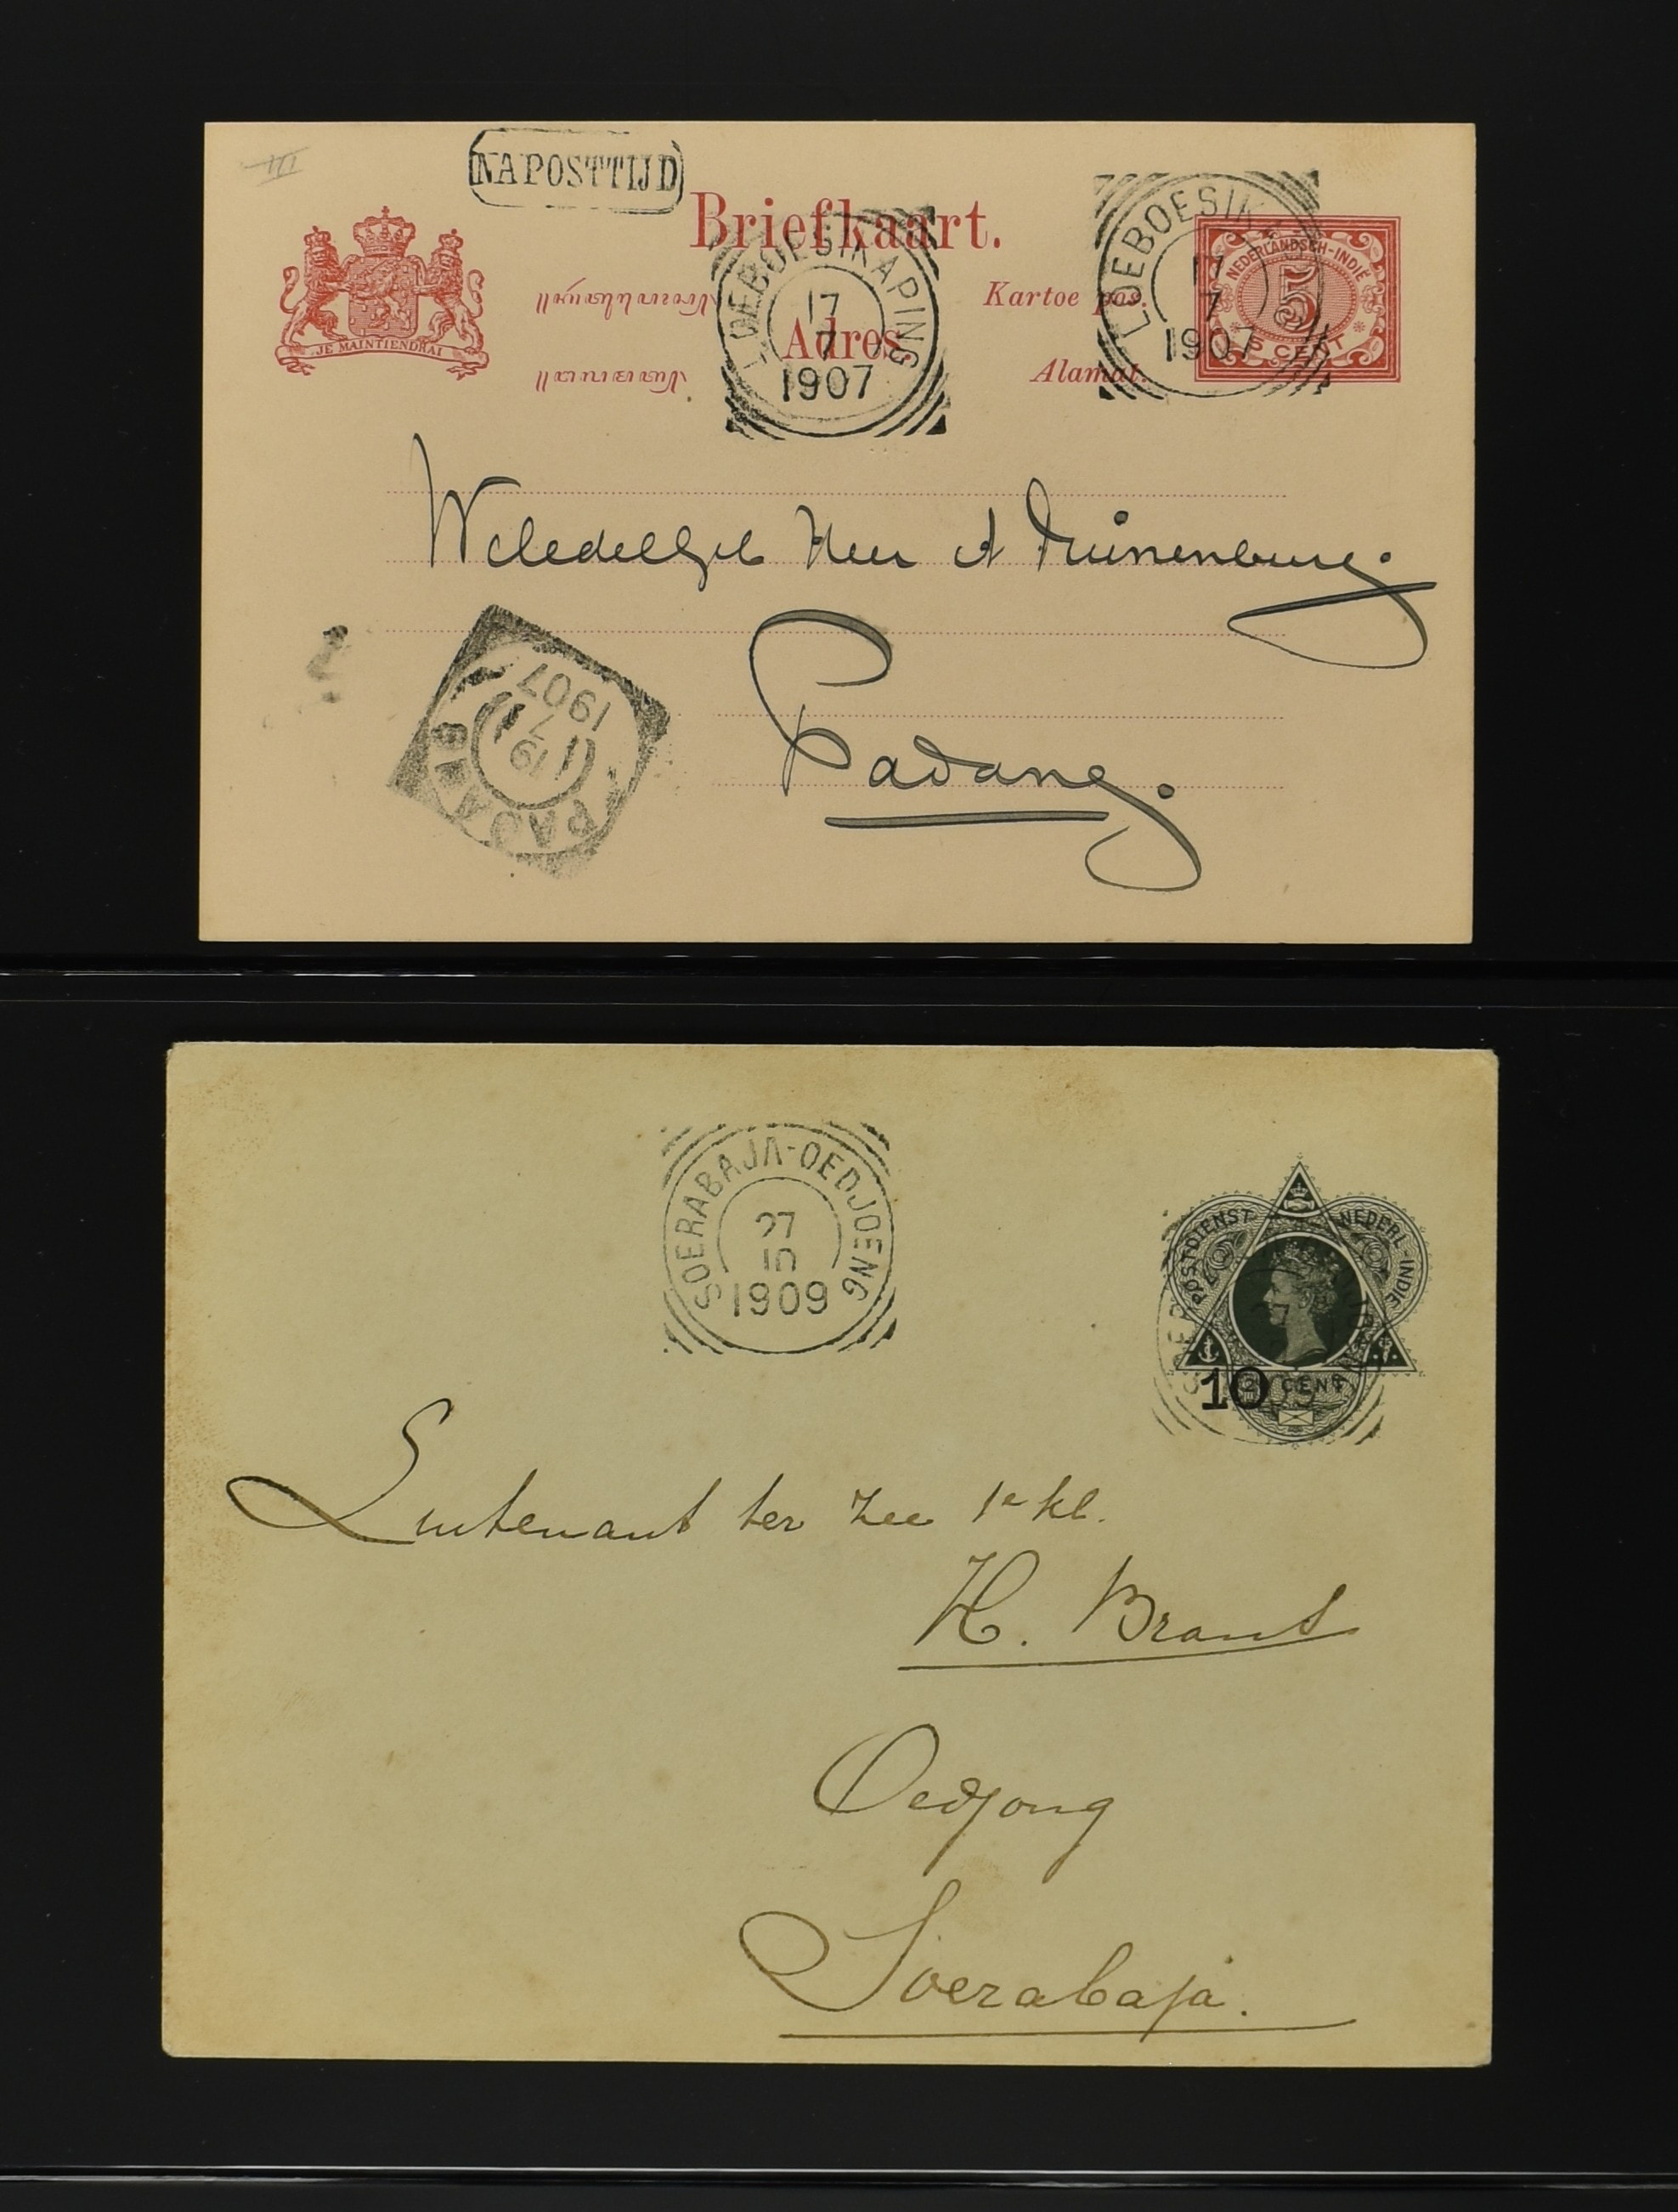 III
NAPOSTTIJD
Briefkaart.
Kartoe pos.
Adres.
Alamat.
JE MAINTIENDRAI
LOEBOESIKAPING
17
7
1907
LOEBOESIK
17
7
1907
NEDERLANDSCH-INDIË
5
5 CENT
WelEdelGeb Heer A Kuinenburg.
Padang.
PADANG
19
7
1907
2
SOERABAJA-OEDJOENG
27
10
1909
POSTDIENST NEDERL-INDIE
10
CENT
Luitenant ter Zee 1e kl.
H. Brants
Oedjong
Soerabaja.